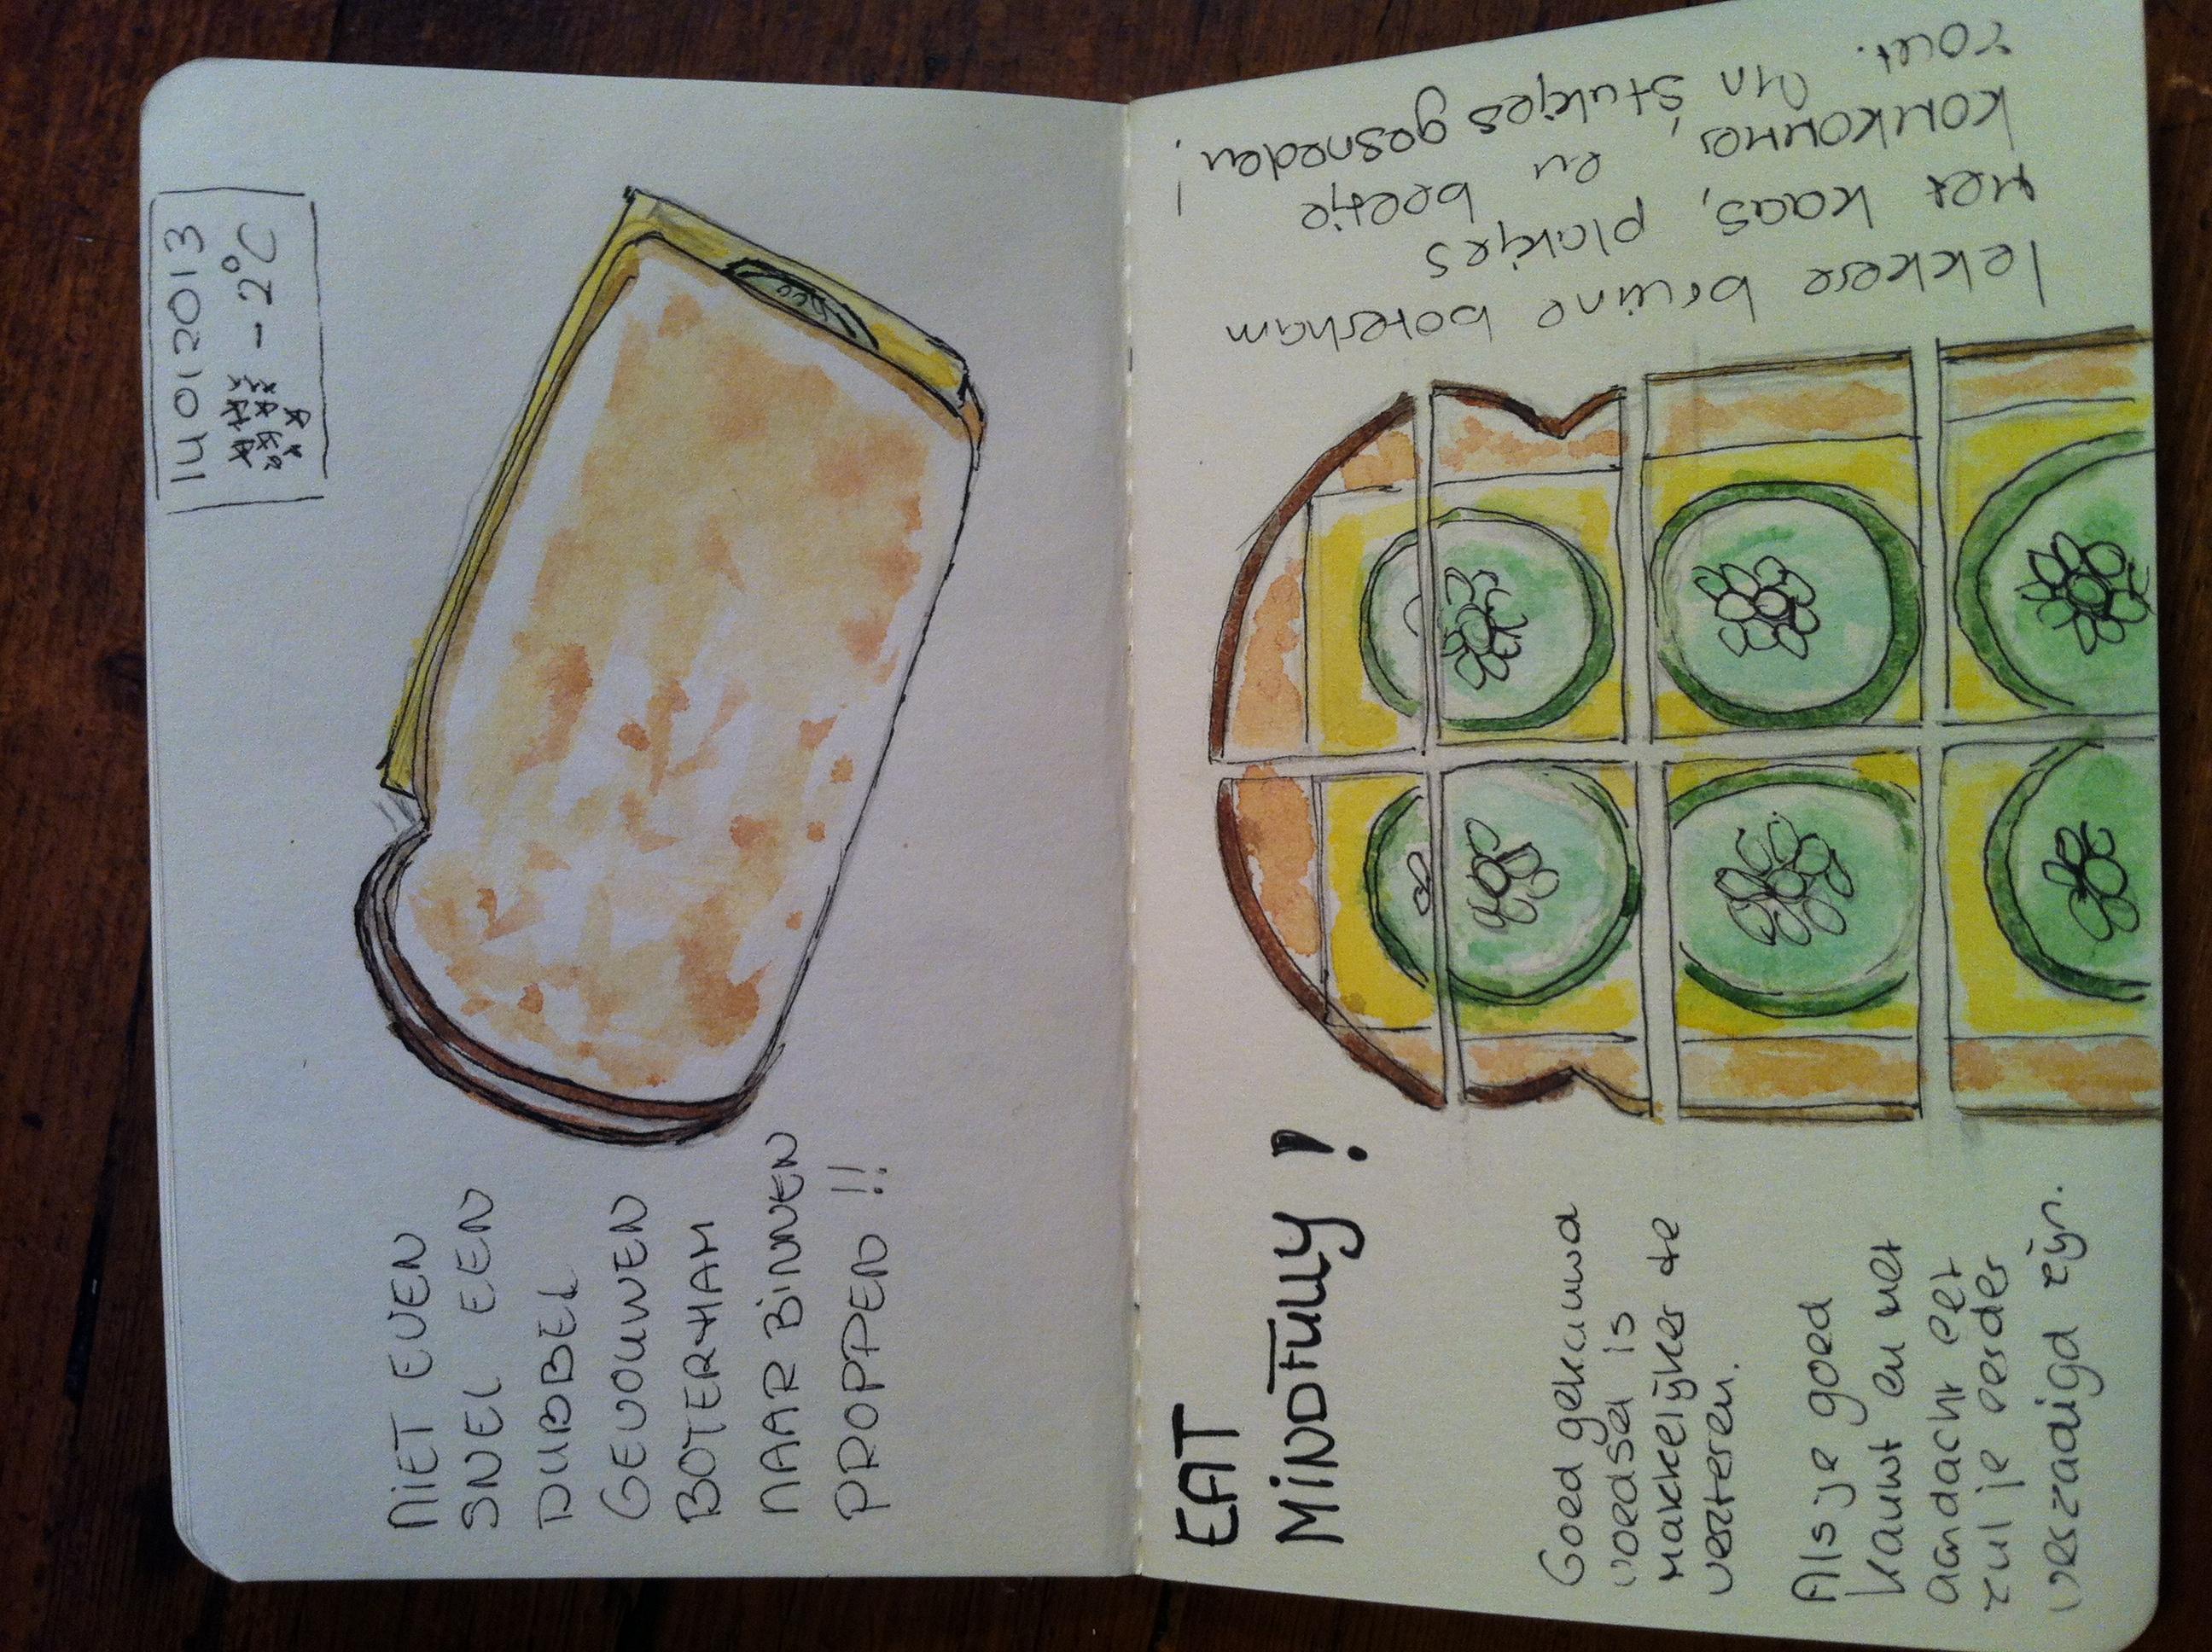 14 01 2013
-2°C
NIET EVEN
SNEL EEN
DUBBEL
GEVOUWEN
BOTERHAM
NAAR BINNEN
PROPPEN !!
EAT
MINDFULLY !
Goed gekauwd
voedsel is
makkelijker te
verteren.
Als je goed
kauwt en met
aandacht eet
zul je eerder
verzadigd zijn.
lekkere bruine boterham
met kaas, plakjes
komkommer, en beetje
zout. In stukjes gesneden !